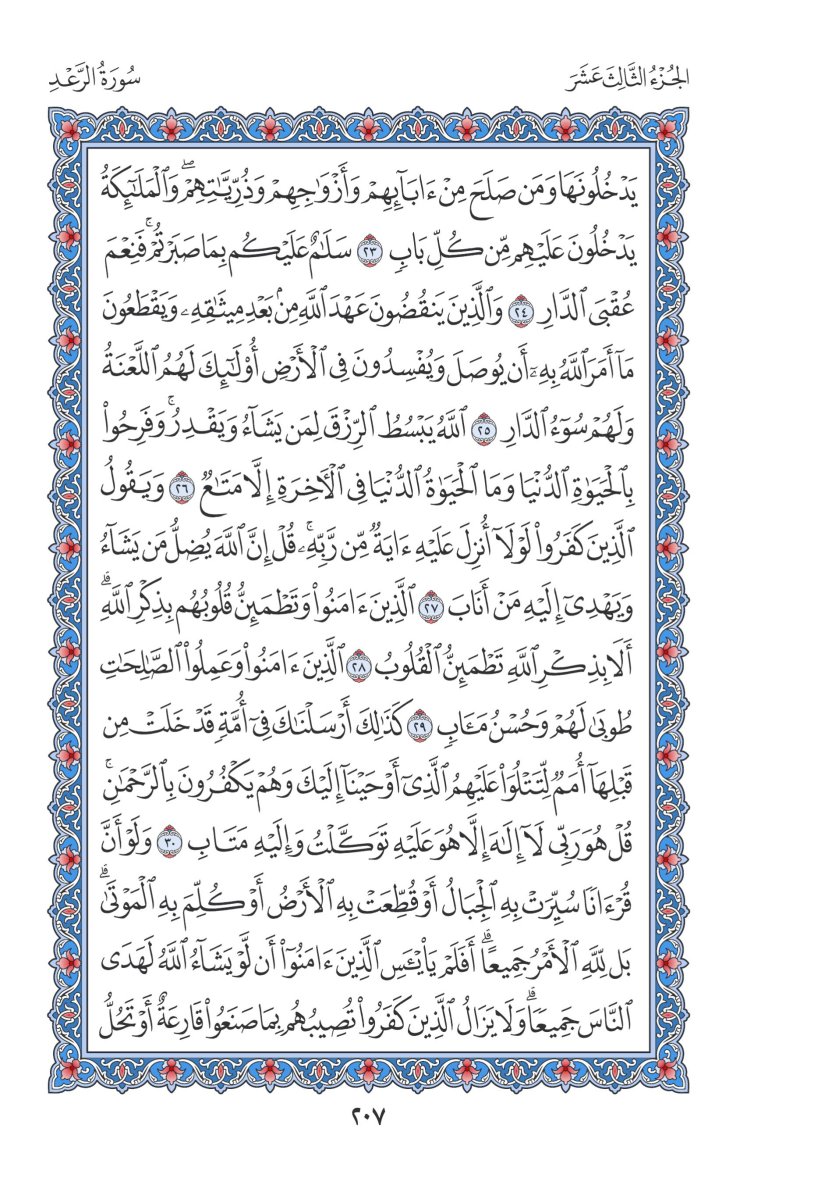 الجُزْءُ الثَّالِثَ عَشَرَ
سُورَةُ الرَّعْدِ
يَدْخُلُونَهَا وَمَن صَلَحَ مِنْ ءَابَآئِهِمْ وَأَزْوَٰجِهِمْ وَذُرِّيَّـٰتِهِمْۖ وَٱلْمَلَـٰٓئِكَةُ
يَدْخُلُونَ عَلَيْهِم مِّن كُلِّ بَابٍ ٢٣ سَلَـٰمٌ عَلَيْكُم بِمَا صَبَرْتُمْۚ فَنِعْمَ
عُقْبَى ٱلدَّارِ ٢٤ وَٱلَّذِينَ يَنقُضُونَ عَهْدَ ٱللَّهِ مِنۢ بَعْدِ مِيثَـٰقِهِۦ وَيَقْطَعُونَ
مَآ أَمَرَ ٱللَّهُ بِهِۦٓ أَن يُوصَلَ وَيُفْسِدُونَ فِى ٱلْأَرْضِ أُو۟لَـٰٓئِكَ لَهُمُ ٱللَّعْنَةُ
وَلَهُمْ سُوٓءُ ٱلدَّارِ ٢٥ ٱللَّهُ يَبْسُطُ ٱلرِّزْقَ لِمَن يَشَآءُ وَيَقْدِرُۚ وَفَرِحُوا۟
بِٱلْحَيَوٰةِ ٱلدُّنْيَا وَمَا ٱلْحَيَوٰةُ ٱلدُّنْيَا فِى ٱلْأَخِرَةِ إِلَّا مَتَـٰعٌ ٢٦ وَيَقُولُ
ٱلَّذِينَ كَفَرُوا۟ لَوْلَآ أُنزِلَ عَلَيْهِ ءَايَةٌ مِّن رَّبِّهِۦۚ قُلْ إِنَّ ٱللَّهَ يُضِلُّ مَن يَشَآءُ
وَيَهْدِىٓ إِلَيْهِ مَنْ أَنَابَ ٢٧ ٱلَّذِينَ ءَامَنُوا۟ وَتَطْمَئِنُّ قُلُوبُهُم بِذِكْرِ ٱللَّهِۗ
أَلَا بِذِكْرِ ٱللَّهِ تَطْمَئِنُّ ٱلْقُلُوبُ ٢٨ ٱلَّذِينَ ءَامَنُوا۟ وَعَمِلُوا۟ ٱلصَّـٰلِحَـٰتِ
طُوبَىٰ لَهُمْ وَحُسْنُ مَـَٔابٍ ٢٩ كَذَٰلِكَ أَرْسَلْنَـٰكَ فِىٓ أُمَّةٍ قَدْ خَلَتْ مِن
قَبْلِهَآ أُمَمٌ لِّتَتْلُوَا۟ عَلَيْهِمُ ٱلَّذِىٓ أَوْحَيْنَآ إِلَيْكَ وَهُمْ يَكْفُرُونَ بِٱلرَّحْمَـٰنِۚ
قُلْ هُوَ رَبِّى لَآ إِلَـٰهَ إِلَّا هُوَ عَلَيْهِ تَوَكَّلْتُ وَإِلَيْهِ مَتَابِ ٣٠ وَلَوْ أَنَّ
قُرْءَانًا سُيِّرَتْ بِهِ ٱلْجِبَالُ أَوْ قُطِّعَتْ بِهِ ٱلْأَرْضُ أَوْ كُلِّمَ بِهِ ٱلْمَوْتَىٰۗ
بَل لِّلَّهِ ٱلْأَمْرُ جَمِيعًاۗ أَفَلَمْ يَا۟يْـَٔسِ ٱلَّذِينَ ءَامَنُوٓا۟ أَن لَّوْ يَشَآءُ ٱللَّهُ لَهَدَى
ٱلنَّاسَ جَمِيعًاۗ وَلَا يَزَالُ ٱلَّذِينَ كَفَرُوا۟ تُصِيبُهُم بِمَا صَنَعُوا۟ قَارِعَةٌ أَوْ تَحُلُّ
٢٠٧